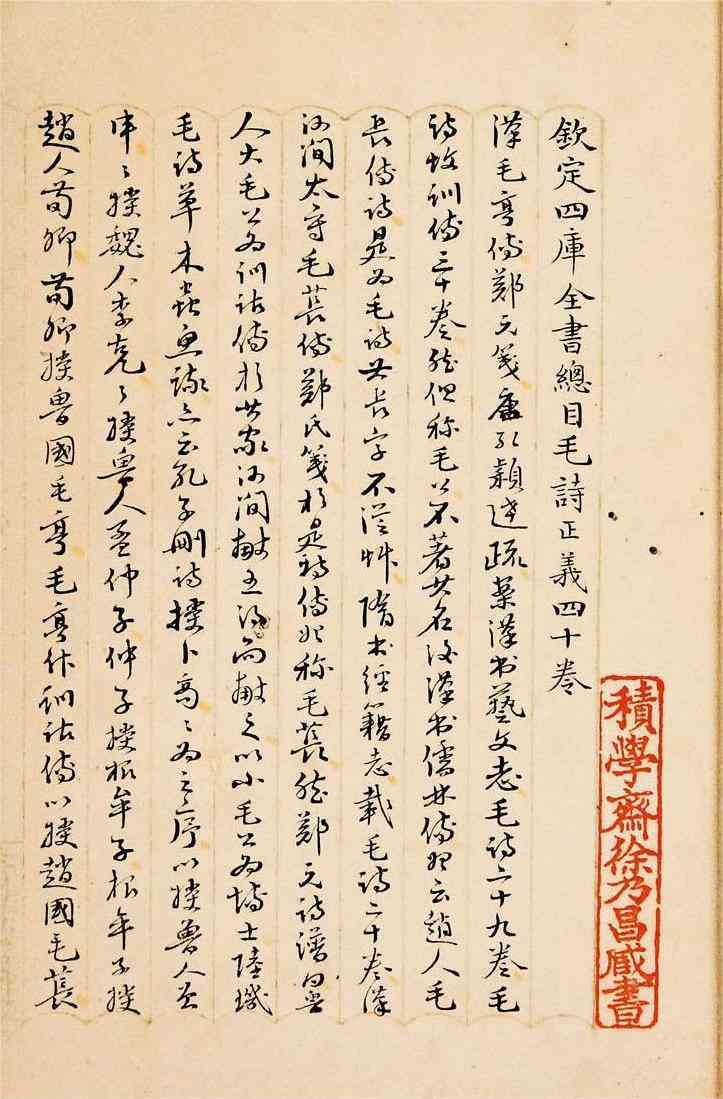 積學齋徐乃昌藏書
欽定四庫全書總目毛詩正義四十卷
漢毛亨傳鄭元箋唐孔穎達疏案漢書藝文志毛詩二十九卷毛
詩故訓傳三十卷然但稱毛公不著其名後漢書儒林傳始云趙人毛
長傳詩是為毛詩其長字不從艸隋書經籍志載毛詩二十卷漢
河間太守毛萇傳鄭氏箋於是詩傳始稱毛萇然鄭元詩譜曰魯
人大毛公為訓詁傳於其家河間獻王得而獻之以小毛公為博士陸璣
毛詩草木蟲魚疏亦云孔子刪詩授卜商〻為之序以授魯人曾
申〻授魏人李克〻授魯人孟仲子仲子授根牟子根牟子授
趙人荀卿荀卿授魯國毛亨毛亨作訓詁傳以授趙國毛萇